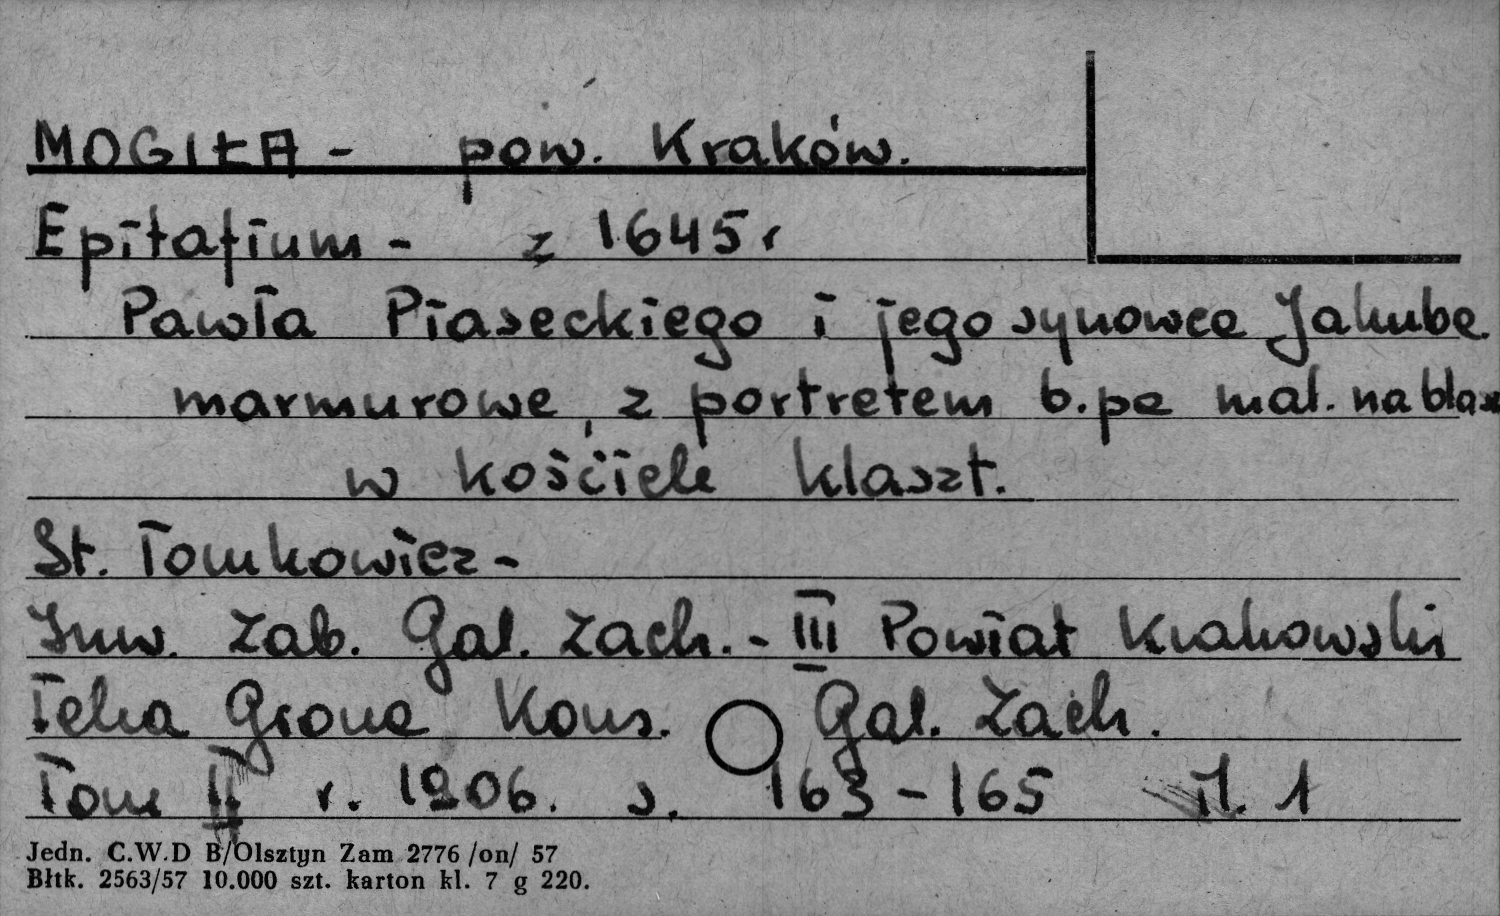 MOGIŁA - pow. Kraków.
Epitafium - z 1645 r
Pawła Piaseckiego i jego synowca Jakuba
marmurowe, z portretem b.pa mal. na blasze
w kościele klaszt.
St. Tomkowicz -
Inw. Zab. Gal. Zach. - III Powiat Krakowski
Teka Grona Kons. Gal. Zach.
Tom II r. 1906. s. 163 - 165 il. 1
Jedn. C.W.D B/Olsztyn Zam 2776 /on/ 57
Błtk. 2563/57 10.000 szt. karton kl. 7 g 220.